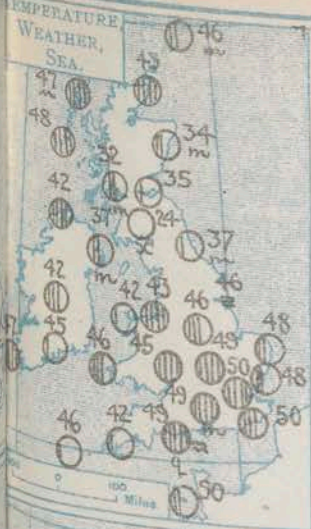 TEMPERATURE,
WEATHER,
SEA.
46
m
43
47
48
34
m
32
35
m
42
24
37
37
m
m
42
46
42
43
46
45
45
49
48
46
50
48
49
m
50
46
42
49
50
0 100
Miles